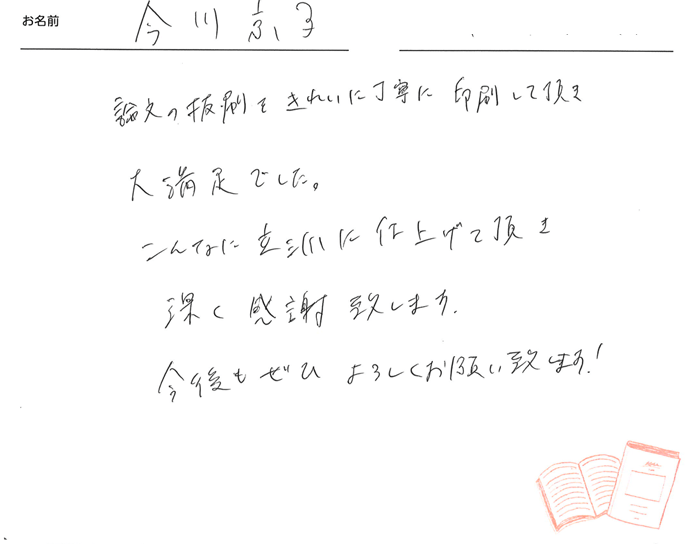 お名前 今川 京子
論文の抜刷をきれいに丁寧に印刷して頂き
大満足でした。
こんなに立派に仕上げて頂き
深く感謝致します.
今後もぜひよろしくお願い致します!